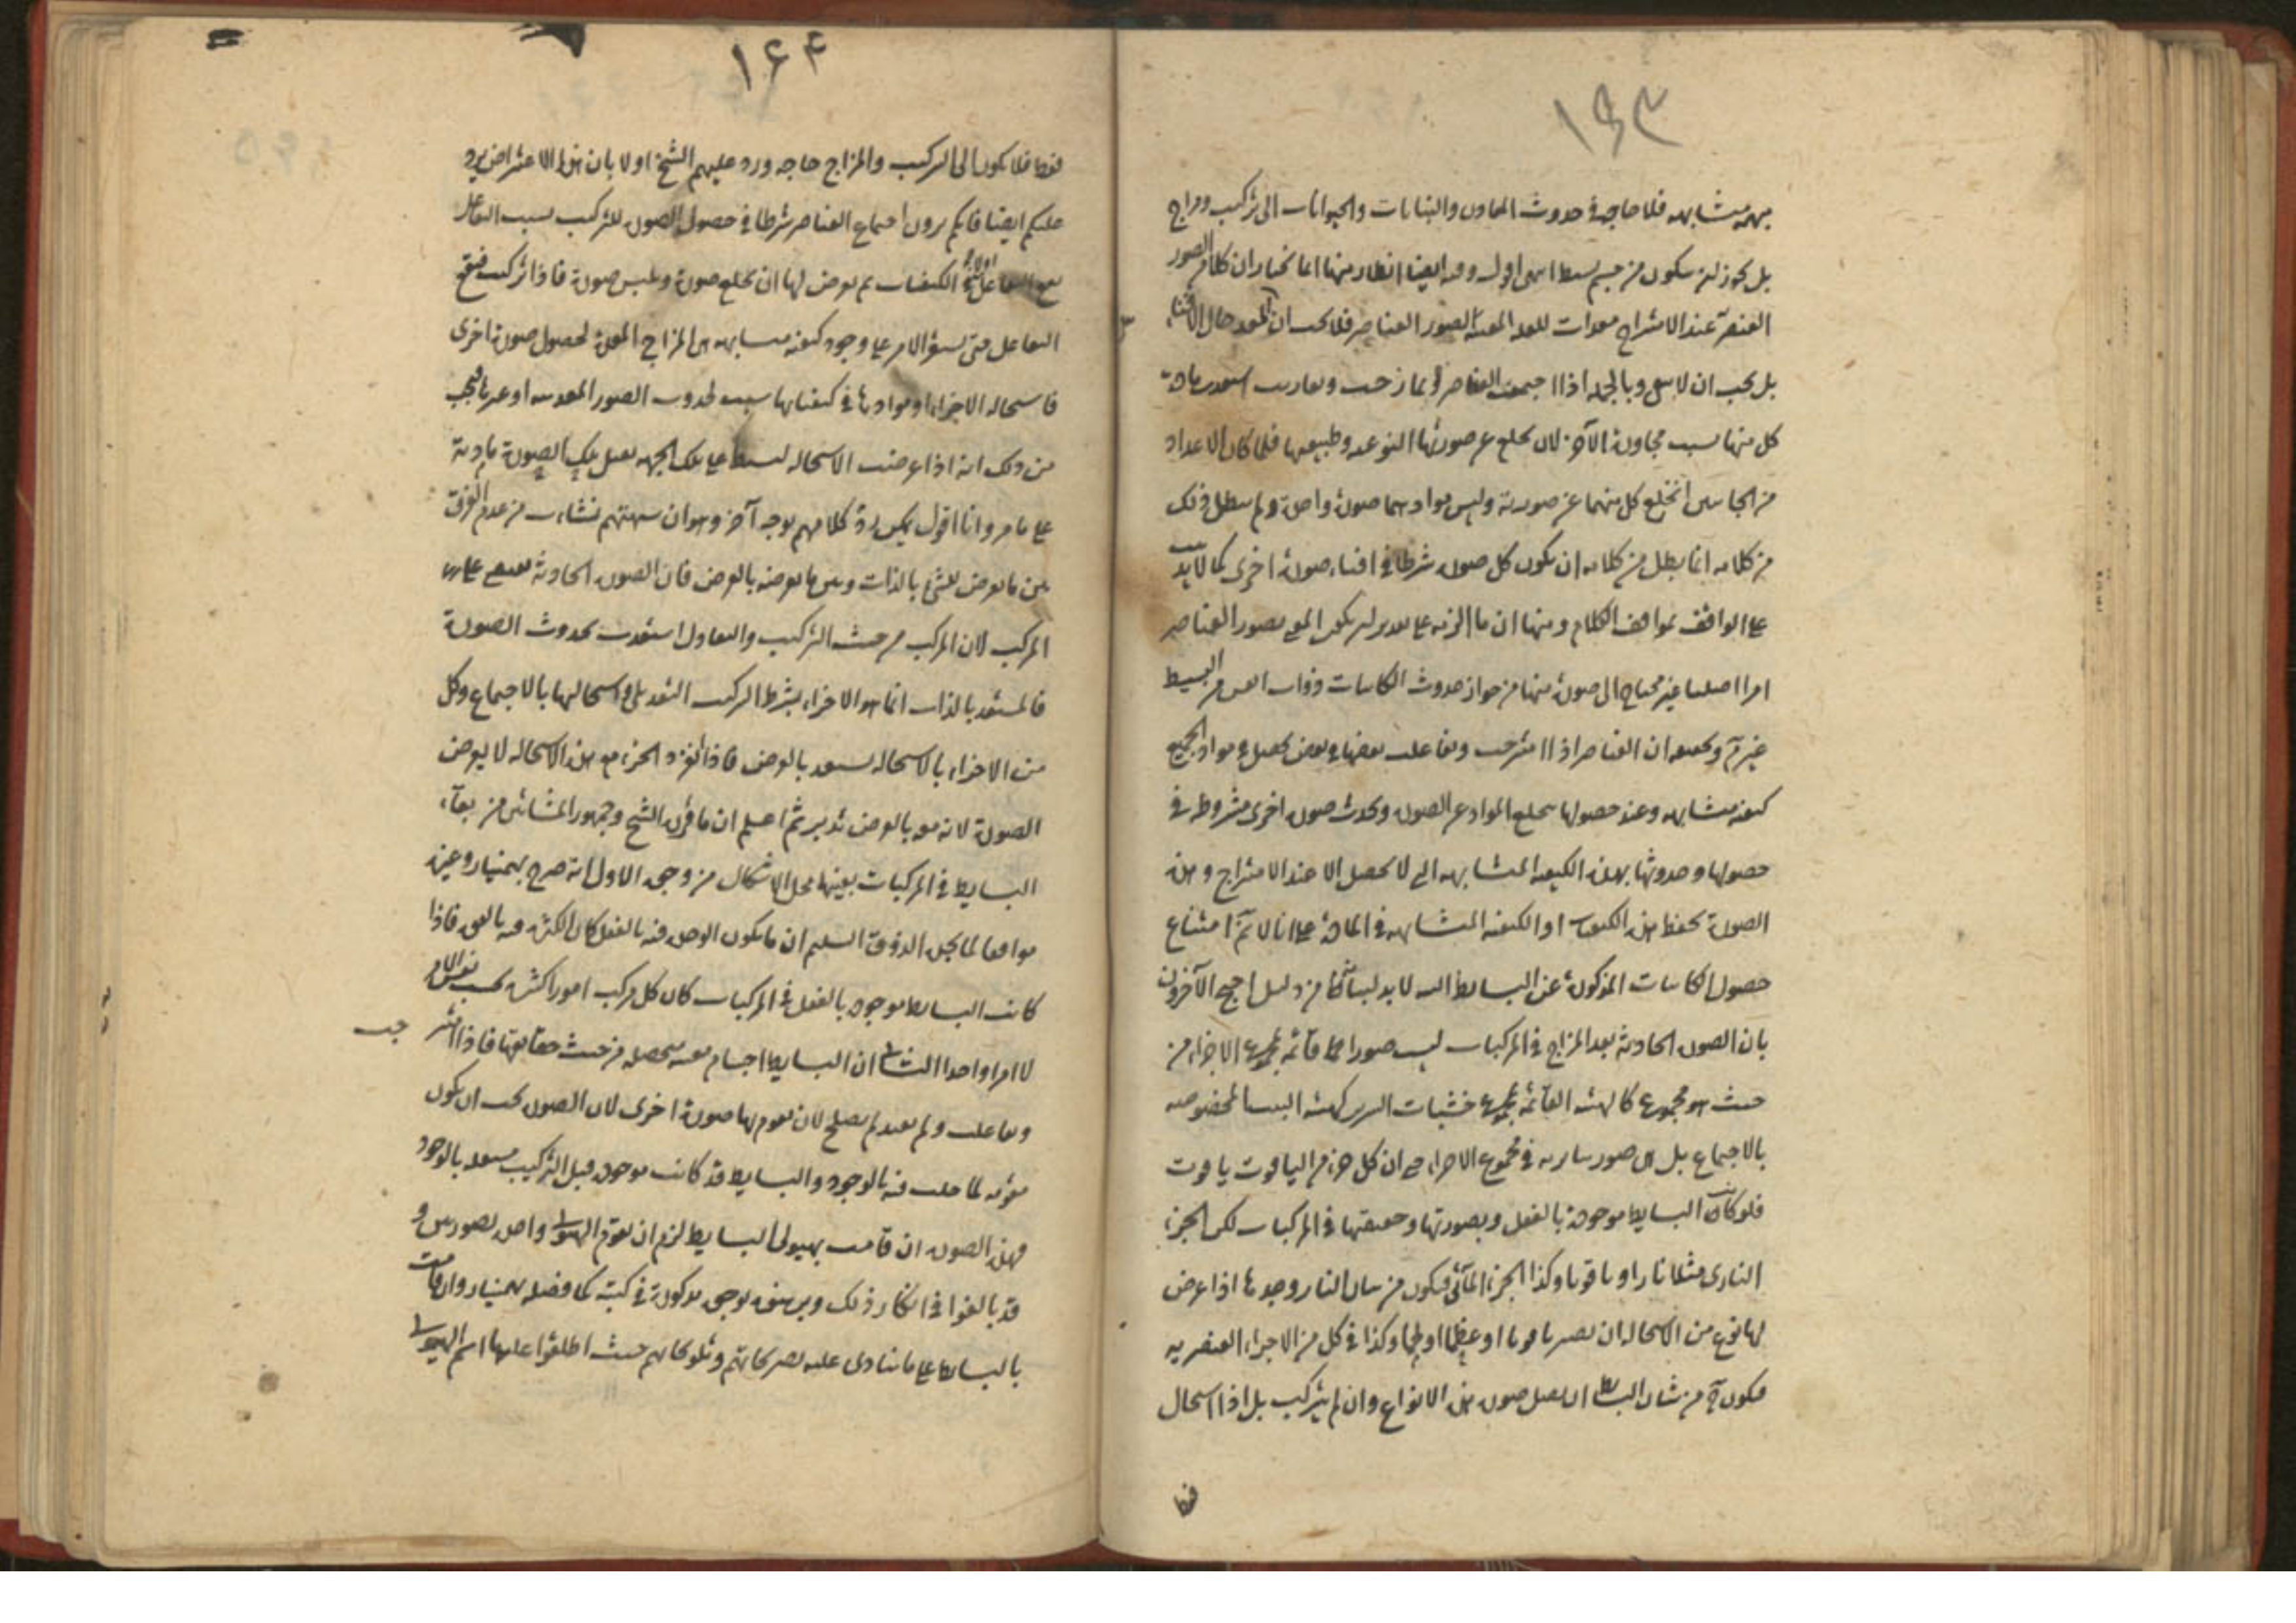 ١٤٣
مبهمة متشابهه فلا حاجة في حدوث المعادن والنباتات والحيوانات الى تركيب ومزاج
بل يجوز ان يتكون من جسم بسيط اقول وفيه ايضا انظار منها انا نختار ان كلا من الصور
العنصرية عند الامتزاج معدات للعلة الصور العناصر فلا يجب ان المعد حال الافناء
بل يجب ان لا يبقى وبالجملة اذا اجتمعت العناصر وتمازجت استعدت مادة
كل منها بسبب مجاورة الآخر لان يخلع عن صورتها النوعية وطبيعتها فلما كان الاعداد
من الجانبين انخلع كل منهما عن صورته وليس موادهما صورة واحدة ولم يبطل ذلك
من كلامه انما يبطل من كلامه ان يكون كل صورة شرطا في افناء صورة اخرى كما لا يذهب
على الواقف بمواقف الكلام ومنها ان ما الزمه على تقدير ان يكون بصور العناصر
امرا اصليا غير محتاج الى صورة منها من جواز حدوث الكاينات ذوات من البسيط
غير تم وتحقيقه ان العناصر اذا امتزجت وتفاعلت بعضها في بعض يحصل في مواد الجميع
كيفية متشابهه وعند حصولها يخلع المواد عن الصور وتحدث صورة اخرى مشروطة في
حصولها وحدوثها بهذه الكيفية المتشابهه التي لا تحصل الا عند الامتزاج وهذه
الصورة تحفظ هذه الكيفيات او الكيفية المتشابهه في المادة على انا لا نم امتناع
حصول الكاينات المذكورة عن البسايط لا بد لبيانها من دليل احتج الآخرون
بان الصورة الحادثة بعد المزاج في المركبات ليست صورا قائمة بمجموع الاجزاء من
حيث هو مجموع كالهيئة القائمة بمجموع خشبات السرير كهيئة المخصوصه
بالاجتماع بل هي صور سارية في مجموع الاجزاء حتى ان كل جزء من الياقوت ياقوت
فلو كانت البسايط موجودة بالفعل وبصورتها وحقيقتها في المركبات لكن الجزء
الناري مثلا نارا وياقوتا وكذا الجزء المائي فيكون من شان النار وحدها اذا عرض
لها نوع من الاستحالة ان تصير ياقوتا او عظما او لحما وكذا في كل من الاجزاء العنصرية
فيكون ح من شان البسايط ان تقبل صورة هذه الانواع وان لم يتركب بل اذا استحال
فقط
١٤٤
فقط فلا يكون الى التركيب والمزاج حاجه ورد عليهم الشيخ اولا بان هذا الاعتراض يرد
عليكم ايضا فانكم ترون اجتماع العناصر شرطا في حصول الصورة للتركيب بسبب التفاعل
الكيفيات ثم يعرض لها ان تخلع صورة وتلبس صورة فاذا تركبت فيقع
التفاعل حتى يستقر الامر على وجود كيفية متشابهه هي المزاج المعدة لحصول صورة اخرى
فاستحالة الاجزاء او موادها في كيفياتها سبب لحدوث الصور المعدنية او غيرها فيجب
من ذلك انه اذا عرضت الاستحالة لبسيط على تلك الجهة يقبل تلك الصورة مادته
على ما مر وانا اقول يمكن رد كلامهم بوجه آخر وهو ان شبهتهم نشات من عدم الفرق
بين ما يعرض للشئ بالذات وبين ما يعرضه بالعرض فان الصورة الحادثة
المركب لان المركب من حيث التركيب والتعادل استعدت بحدوث الصورة
فالمستعد بالذات انما هو الاجزاء بشرط التركيب في استحالتها بالاجتماع وكل
من الاجزاء بالاستحالة يستعد بالعرض فاذا انفرد الجزء مع هذه الاستحالة لا يعرض
الصورة لانه بالعرض تدبر ثم اعلم ان ما قرره الشيخ وجمهور المشائين من بقاء
البسايط في المركبات بعينها محل الاشكال من وجوه الاول انه صرح بهمنيار وغيره
موافقا لما يحكم الذوق السليم ان ما يكون الوحدة فيه بالفعل كان الكثرة فيه بالقوة فاذا
كانت البسايط موجودة بالفعل في المركبات كان كل مركب امورا كثيرة بحسب نفس الامر
لا امرا واحدا الثاني ان البسايط اجسام متحصلة من حيث حقايقها فاذا امتزجت
وتفاعلت ولم تعدم لم يصلح لان يقوم بها صورة اخرى لان الصورة يجب ان يكون
مقومة لما حلت فيه بالوجود والبسايط قد كانت موجودة قبل التركيب بالوجود
فهذه الصورة ان قامت بهيولى البسايط لزم ان تقوم الهيولى واحدة بصورتين و
قد بالغوا في انكار ذلك وبرهنوه بوجوه مذكورة في كتبه كما فصله بهمنيار وان قامت
بالبسايط على ما ينادى عليه تصريحاتهم وتلويحاتهم حيث اطلقوا عليها اسم الهيولى